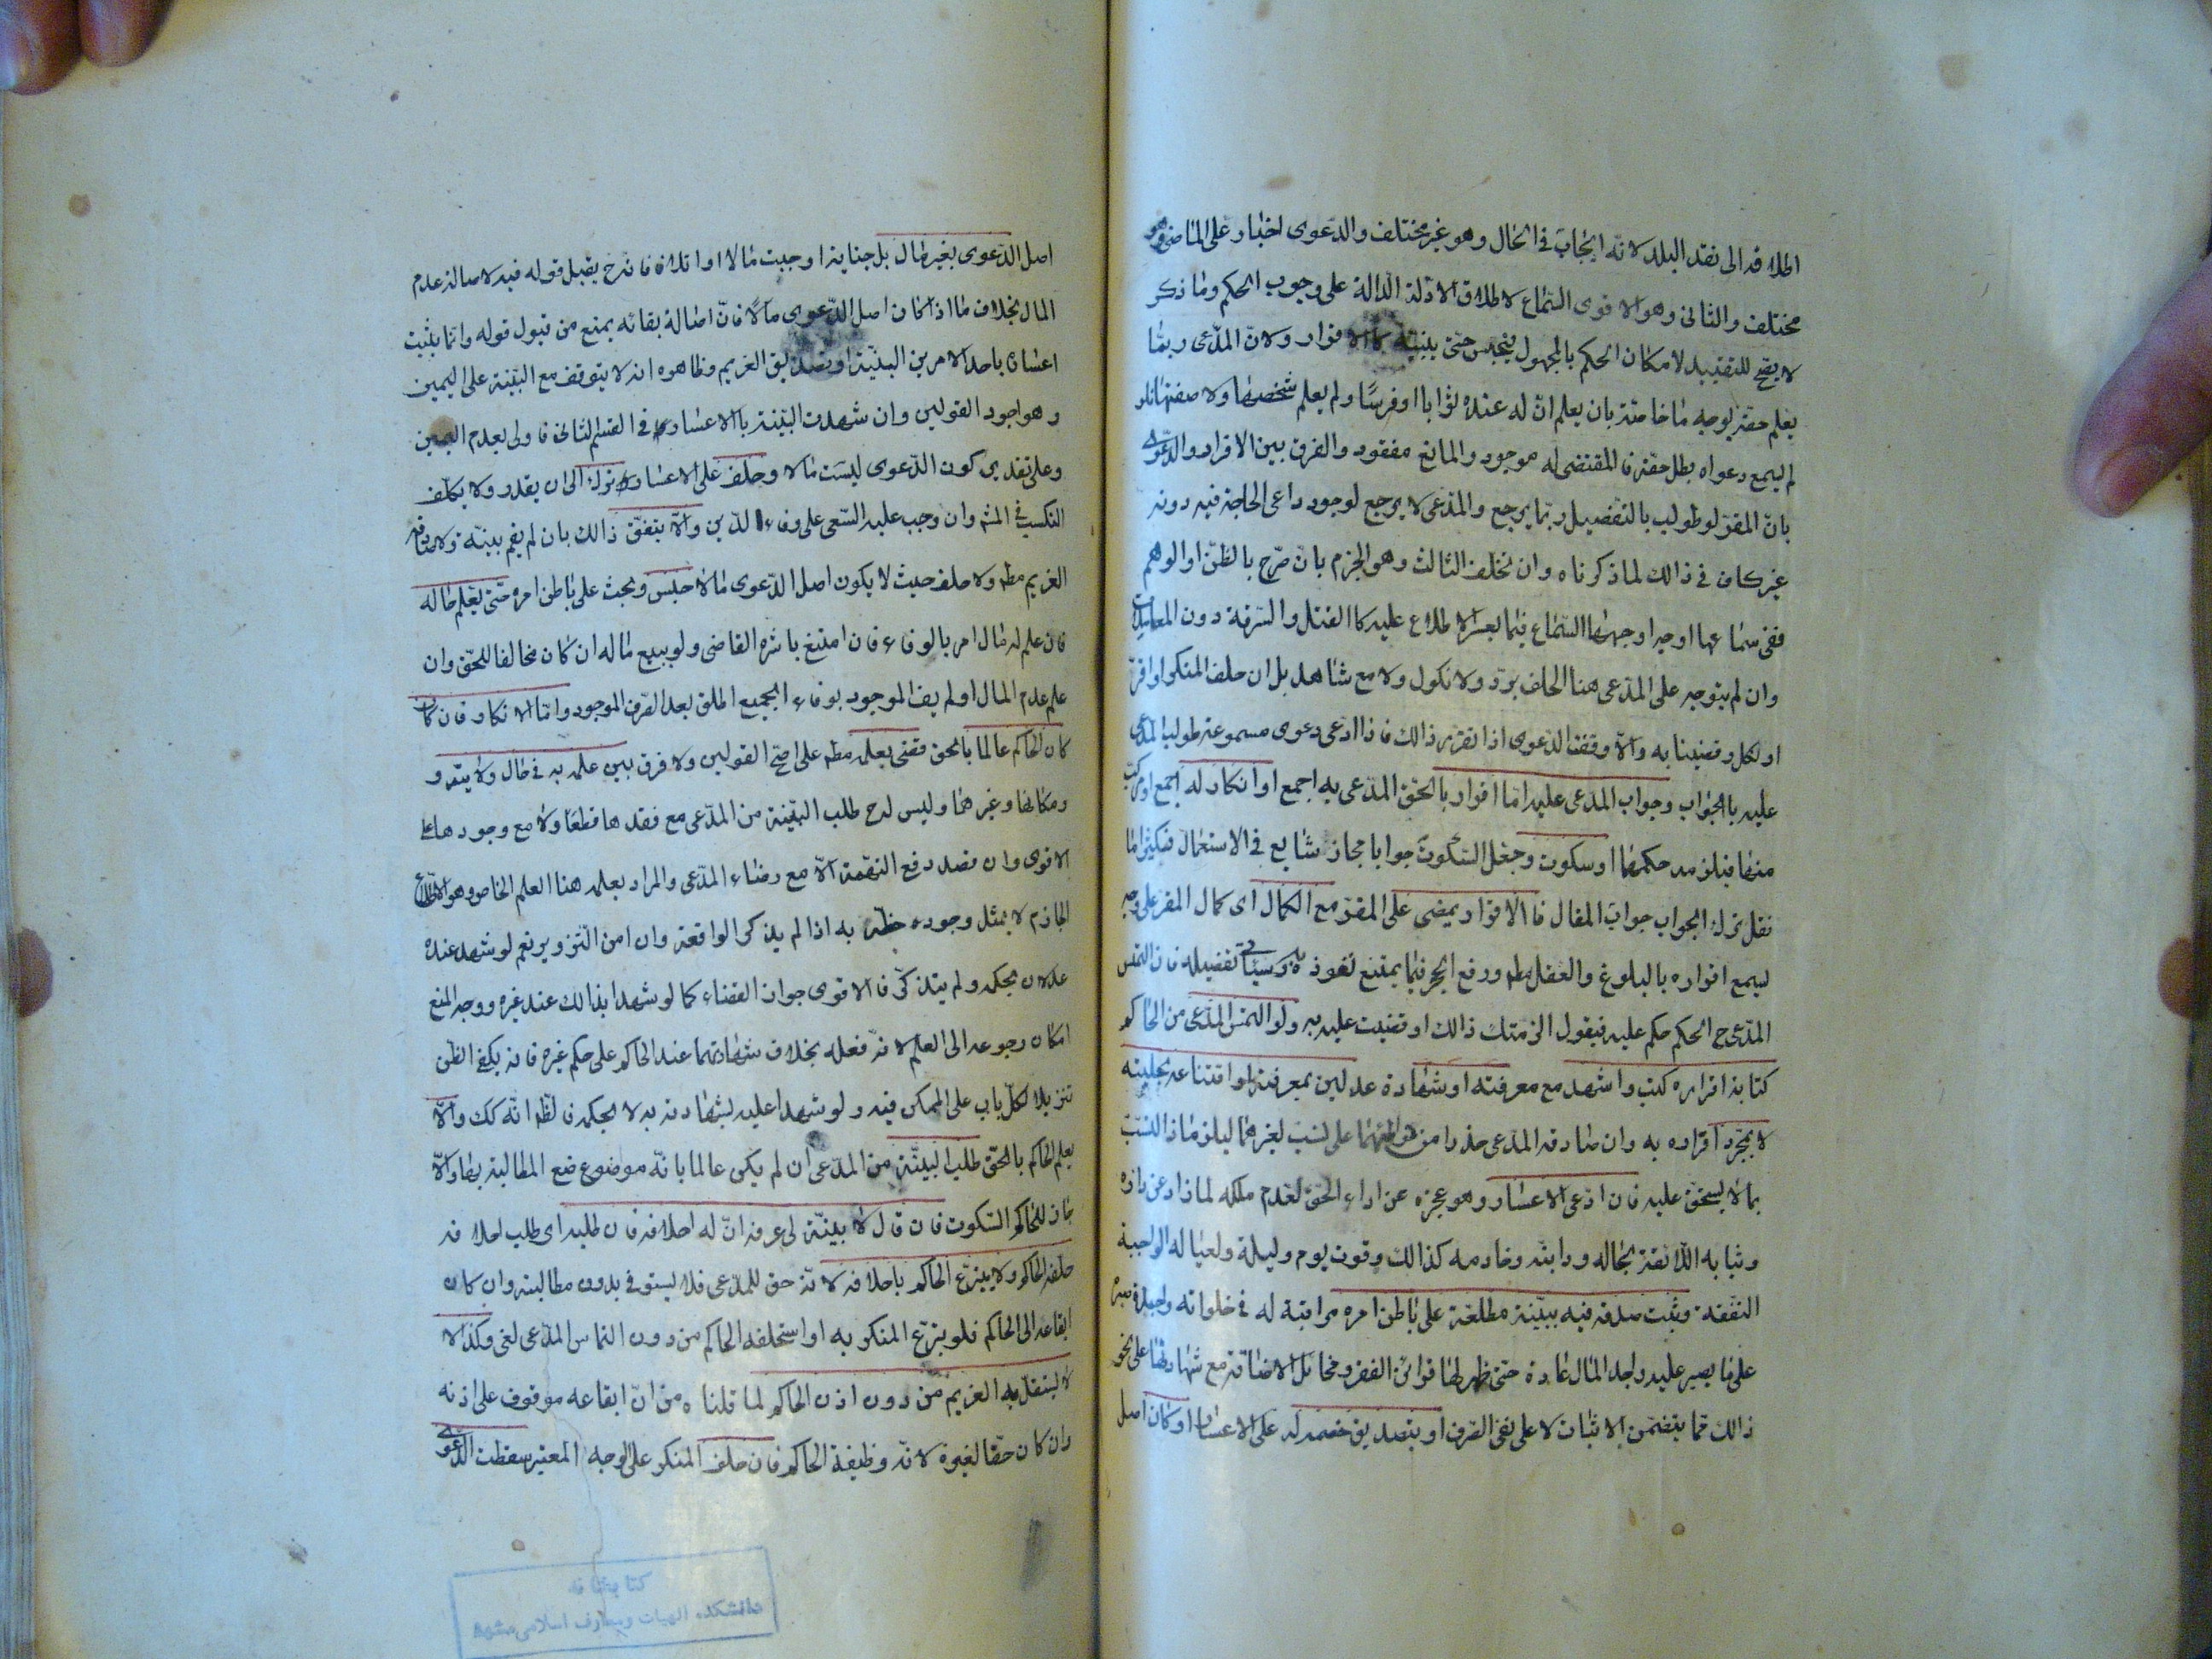 اطلاقه الى نقد البلد لانّه ايجاب فى الحال وهو غير مختلف والدعوى اخبار على الماضى وهو
مختلف والثانى وهو الاقوى السّماع لاطلاق الادلة الدالة على وجوب الحكم وما ذكر
لا يصحّ للتقييد لامكان الحكم بالمجهول فيحبس حتى يبيّنه كالاقرار ولانّ المدّعى ربمّا
يعلم حقّه بوجه ما خاصّة بان يعلم انّ له عنده ثوابا او فرسًا ولم يعلم شخصهما ولا صفتهما فلو
لم يسمع دعواه بطل حقّه فالمقتضى له موجود والمانع مفقود والفرق بين الاقرار والدّعوى
بانّ المقرّ لو طولب بالتفصيل ربّما يرجع والمدّعى لا يرجع لوجود داعى الحاجة فيه دونه
غير كاف فى ذالك لما ذكرناه وان تخلف الثالث وهو الجزم بان صرّح بالظنّ او الوهم
ففى سماعها اوجه اوجهها السّماع فيما يعسر الاطلاع عليه كالقتل والسّرقة دون المعاملات
وان لم يتوجه على المدّعى هنا الحلف بردّ ولا نكول ولا مع شاهد بل ان حلف المنكر او اقرّ
او نكل وقضينا به والّا وقفت الدّعوى اذا تقرّر ذالك فاذا ادعى دعوى مسموعة طولب المدّعى
عليه بالجواب وجواب المدعى عليه امّا اقرار بالحقّ المدّعى به اجمع او انكار له اجمع او مركّب
منهما فيلزمه حكمهما او سكوت وجعل السّكوت جوابا مجاز شايع فى الاستعمال فكثيرا ما
نقل ترك الجواب جواب المقال فالاقرار يمضى على المقرّ مع الكمال اى كمال المقر على وجه
يسمع اقراره بالبلوغ والعقل مطم ورفع الحجر فيما يمتنع نفوذه به وسيأتى تفصيله فان التمس
المدّعى ح الحكم حكم عليه فيقول الزمتك ذالك او قضيت عليك به ولو التمس المدّعى من الحاكم
كتابة اقراره كتب واشهد مع معرفته او شهادة عدلين بمعرفته او اقتناعه بحليته
لا بمجّرد اقراره به وان صادقه المدّعى حذرا من تواطئهما على نسب لغيرهما ليلزما ذا النسب
بما لا يستحقّ عليه فان ادّعى الاعسار وهو عجزه عن اداء الحقّ لعدم ملكه لما زاد عن داره
وثيابه اللائقة بحاله ودابته وخادمه كذالك وقوت يوم وليلة ولعياله الواجبة
النّفقة وثبت صدقه فيه ببيّنة مطلعة على باطن امره مراقبة له فى خلواته واجدة صبره
على ما لا يصبر عليه واجد المال عادة حتى ظهر لها قرائن الفقر ومخائل الاضاقة مع شهادتها على نحو
ذالك مّما يتضمّن الاثبات لا على نفى الصّرف او بتصديق خصمه له على الاعسار او كان اصل
اصل الدّعوى بغير مال بل جناية اوجبت مالا او اتلاف فانّه ح يقبل قوله فيه لاصالة عدم
المال بخلاف ما اذا كان اصل الدّعوى مالًا فانّ اصالة بقائه يمنع من قبول قوله وانّما يثبت
اعساره باحد الامرين البيّنة او تصديق الغريم وظاهره انه لا يتوقف مع البيّنة على اليمين
وهو اجود القولين وان شهدت البيّنة بالاعسار فى القسم الثانى فاولى بعدم اليمين
وعلى تقدير كون الدّعوى ليست مالا وحلف على الاعسار ترك الى ان يقدر ولا يكلّف
التكسب فى المشهور وان وجب عليه السّعى على وفاء الدّين والّا يتفق ذالك بان لم يقم بيّنة ولا صادقه
الغريم مطم ولا حلف حيث لا يكون اصل الدّعوى مالا حبس وبحث على باطن امره حتى يعلم حاله
فان علم له مال امر بالوفاء فان امتنع باشره القاضى ولو ببيع ماله ان كان مخالفا للحقّ وان
علم عدم المال او لم يف الموجود بوفاء الجميع اطلق بعد الصّرف الموجود وامّا الانكار فان كان
كان الحاكم عالما بالحق قضى بعلمه مطم على اصحّ القولين ولا فرق بين علمه به فى حال ولايته و
ومكانها وغيرهما وليس له ح طلب البيّنة من المدّعى مع فقدها قطعًا ولا مع وجودها على
الاقوى وان قصد دفع التّهمة الّا مع رضاء المدّعى والمراد بعلمه هنا العلم الخاص وهو الاطّلاع
الجازم لا بمثل وجوده خطّه به اذا لم يذكر الواقعة وان امن التّزوير نعم لو شهد عنده
عدلان بحكمه ولم يتذكّر فالاقوى جواز القضاء كما لو شهدا بذالك عند غيره ووجه المنع
امكان رجوعه الى العلم لانّه فعله بخلاف شهادتهما عند الحاكم على حكم غيره فانه يكفى الظن
تنزيلا لكلّ باب على الممكن فيه ولو شهدا عليه بشهادته به لا بحكمه فالظّم انّه كك والّا
يعلم الحاكم بالحقّ طلب البيّنة من المدّعى ان لم يكن عالما بانّه موضوع ضع المطالبة بها والّا
جاز للحاكم السّكوت فان قال لا بيّنة لى عرفه انّ له احلافه فان طلبه اى طلب احلافه
حلّفه الحاكم ولا يتبرّع الحاكم باحلافه لانّه حق للمدّعى فلا يستوفى بدون مطالبته وان كان
ايقاعه الى الحاكم فلو تبرّع المنكر به او استحلفه الحاكم من دون التماس المدّعى لغى وكذا لا
لا يستقل به الغريم من دون اذن الحاكم لما قلناه من انّ ايقاعه موقوف على اذنه
وان كان حّقا لغيره لانّه وظيفة الحاكم فان حلف المنكر على الوجه المعتبر سقطت الدّعوى
كتابخانه
دانشکده الهیات و معارف اسلامی مشهد